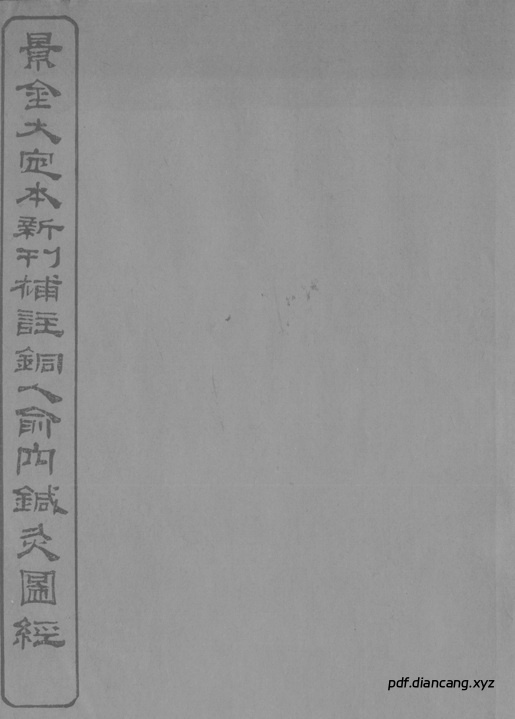 景金大定本新刊補註銅人俞穴鍼灸圖經
pdf.diancang.xyz